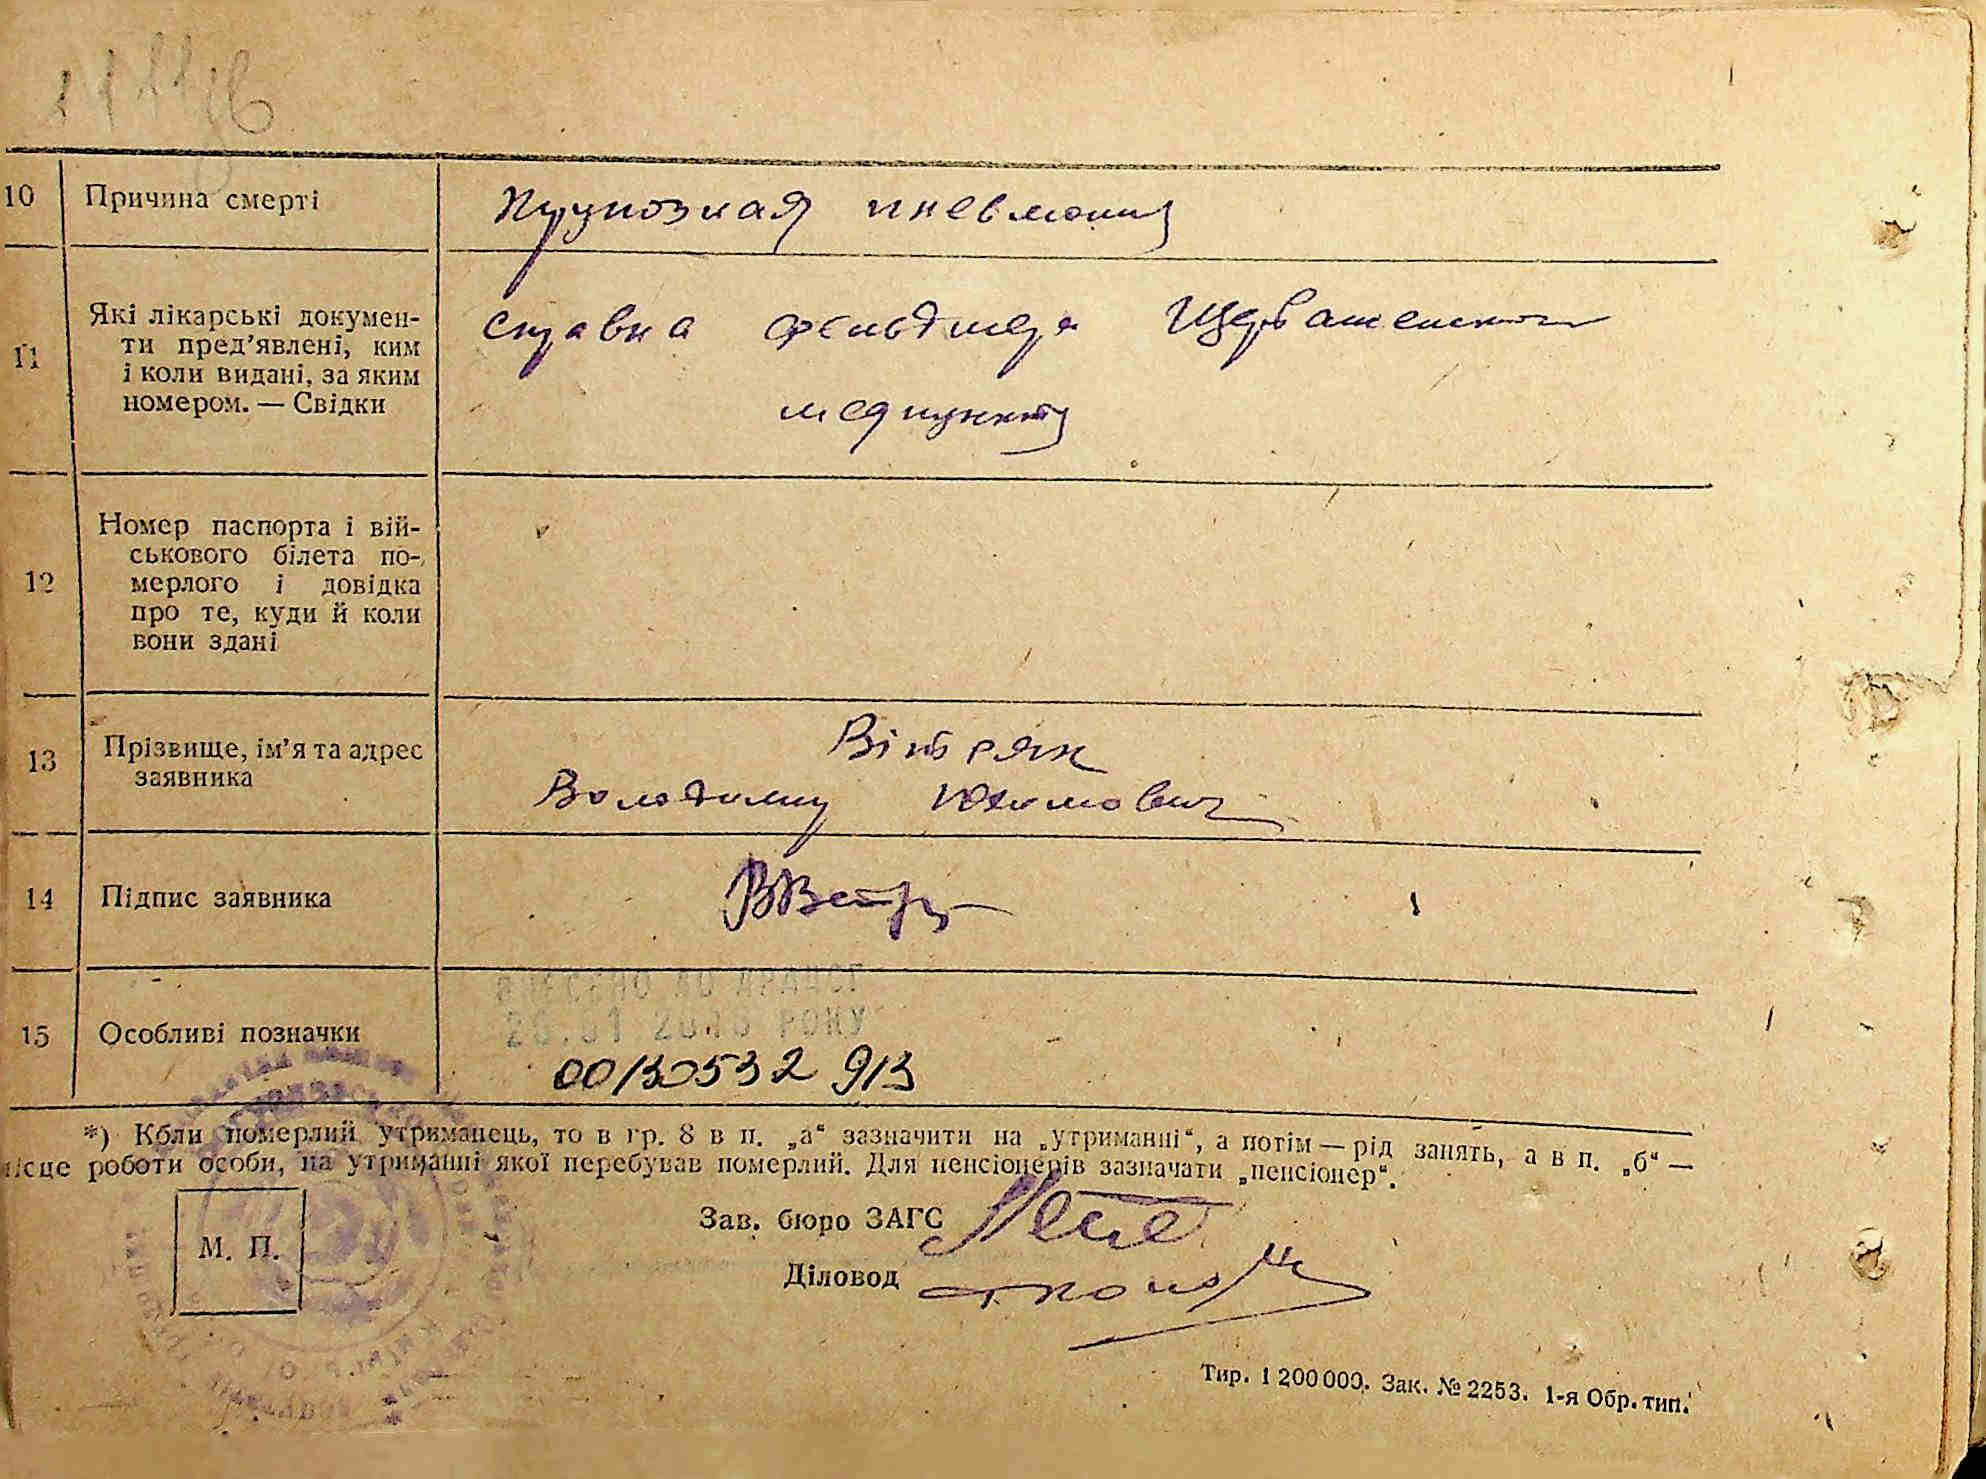 10 Причина смерті Крупозная пневмония
11 Які лікарські докумен-
ти пред’явлені, ким
і коли видані, за яким
номером. — Свідки
справка фельдшера
медпункта
12 Номер паспорта і вій-
ськового білета по-
мерлого і довідка
про те, куди й коли
вони здані
13 Прізвище, ім’я та адрес
заявника
Вітряк
Володимир Юхимович
14 Підпис заявника
ВНЕСЕНО ДО ДРАЦСГ
РОКУ
15 Особливі позначки
00130532 913
*) Коли померлий утриманець, то в гр. 8 в п. „а“ зазначити на „утриманні“, а потім — рід занять, а в п. „б“ —
місце роботи особи, на утриманні якої перебував померлий. Для пенсіонерів зазначати „пенсіонер“.
М. П.
Зав. бюро ЗАГС
Діловод
Тир. 1 200 000. Зак. № 2253. 1-я Обр. тип.